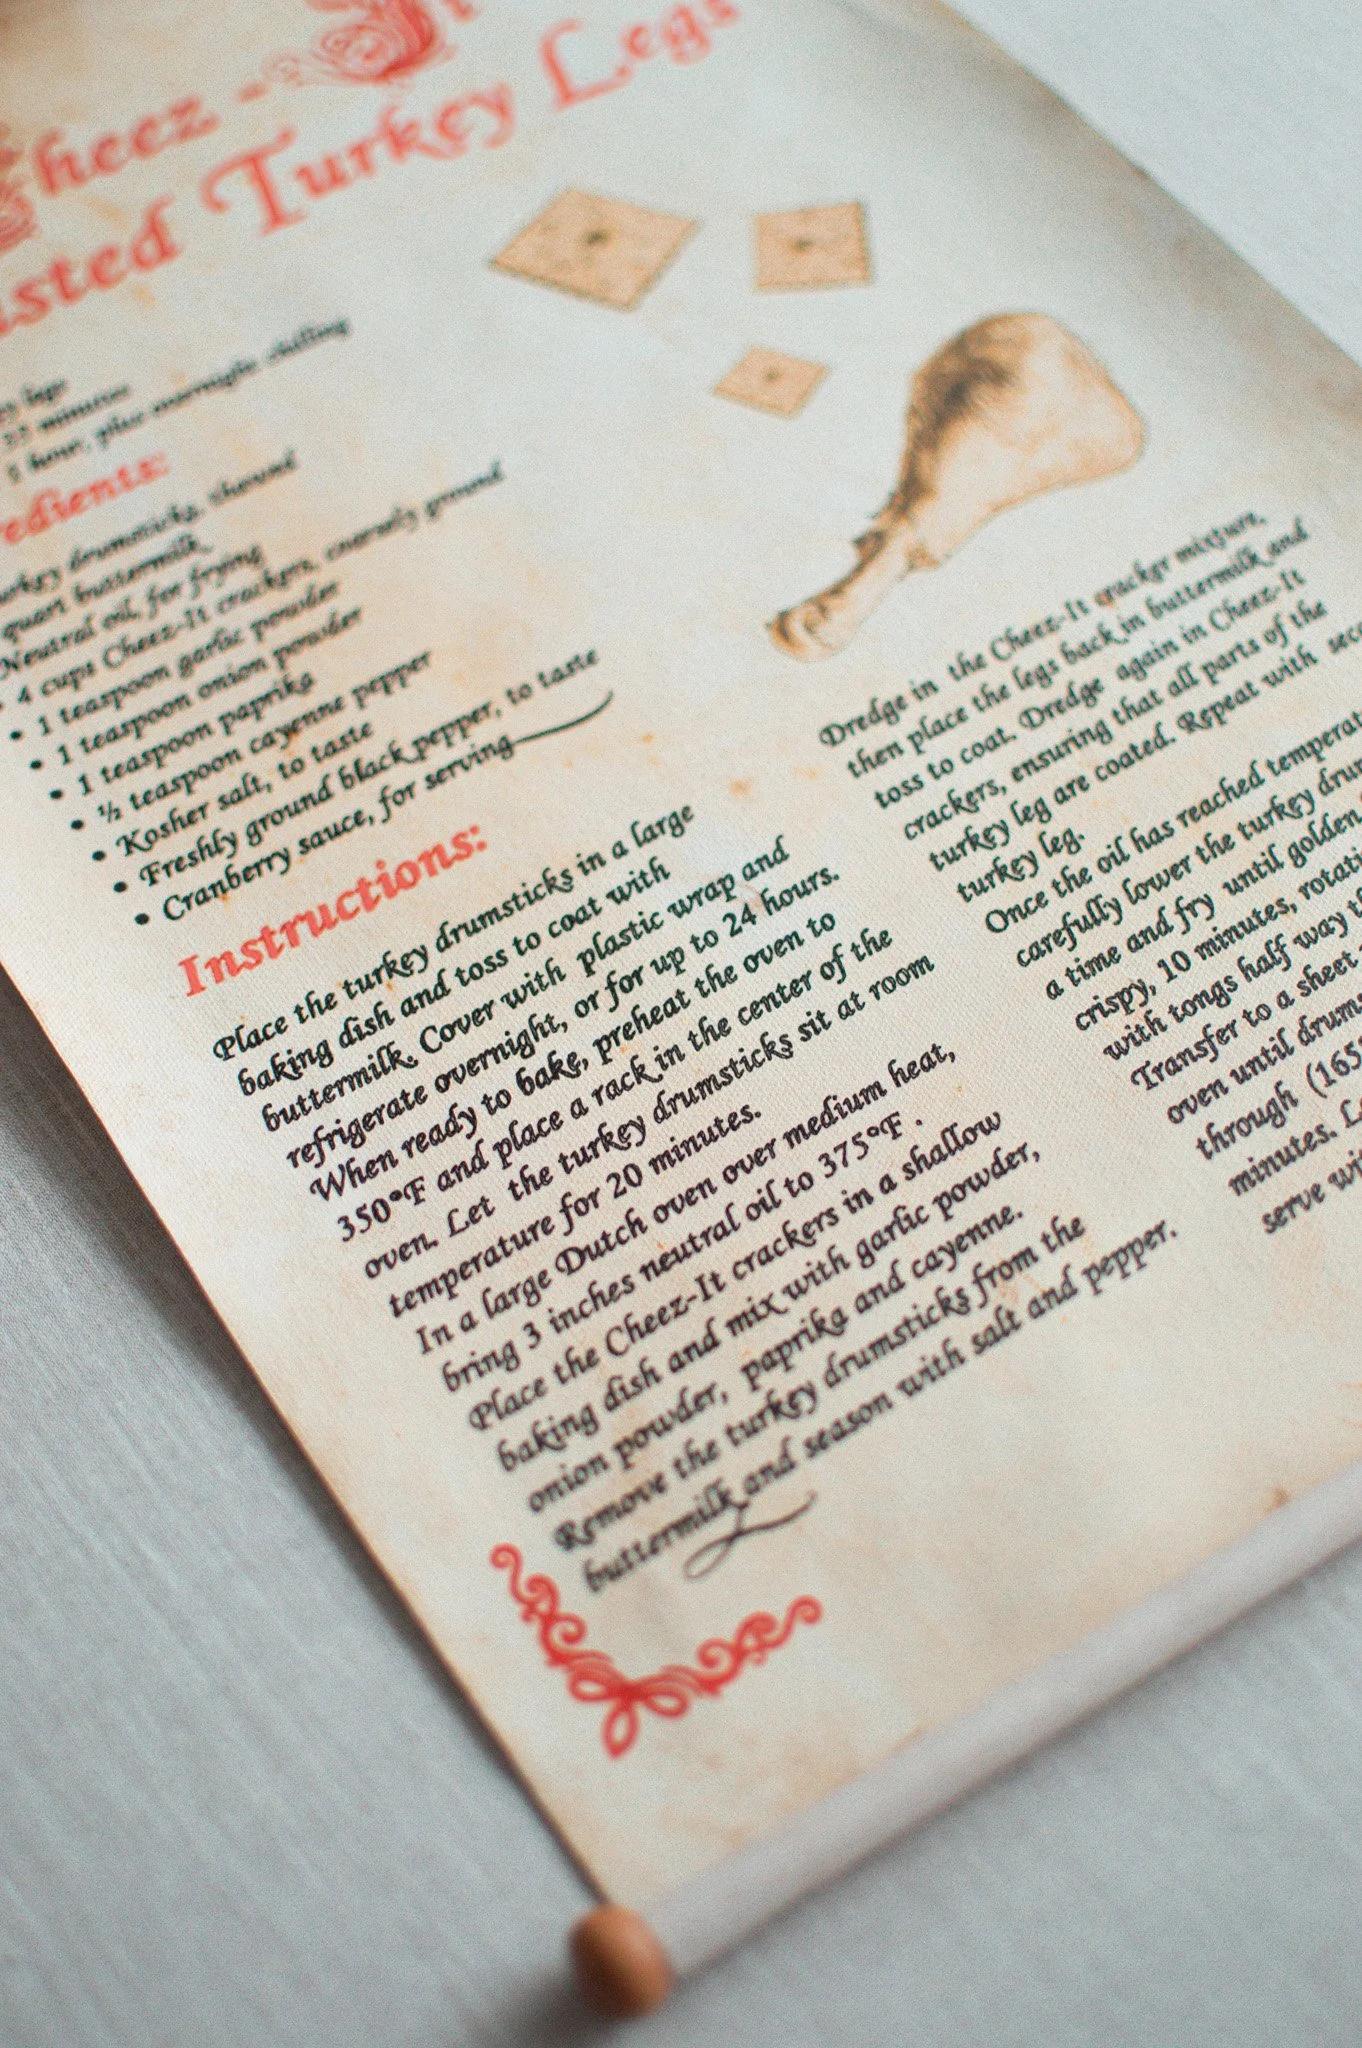 heez-I
sted Turkey Legs
legs
35 minutes
1 hour, plus overnight chilling
edients:
urkey drumsticks, thawed
quart buttermilk
Neutral oil, for frying
• 4 cups Cheez-It crackers, coarsely ground
• 1 teaspoon garlic powder
• 1 teaspoon onion powder
• 1 teaspoon paprika
• ½ teaspoon cayenne pepper
• Kosher salt, to taste
• Freshly ground black pepper, to taste
• Cranberry sauce, for serving
Instructions:
Place the turkey drumsticks in a large
baking dish and toss to coat with
buttermilk. Cover with plastic wrap and
refrigerate overnight, or for up to 24 hours.
When ready to bake, preheat the oven to
350°F and place a rack in the center of the
oven. Let the turkey drumsticks sit at room
temperature for 20 minutes.
In a large Dutch oven over medium heat,
bring 3 inches neutral oil to 375°F .
Place the Cheez-It crackers in a shallow
baking dish and mix with garlic powder,
onion powder, paprika and cayenne.
Remove the turkey drumsticks from the
buttermilk and season with salt and pepper.
Dredge in the Cheez-It cracker mixture,
then place the legs back in buttermilk and
toss to coat. Dredge again in Cheez-It
crackers, ensuring that all parts of the
turkey leg are coated. Repeat with seco
turkey leg.
Once the oil has reached temperat
carefully lower the turkey drum
a time and fry until golden
crispy, 10 minutes, rotati
with tongs half way t
Transfer to a sheet
oven until drums
through (165°
minutes. L
serve wi